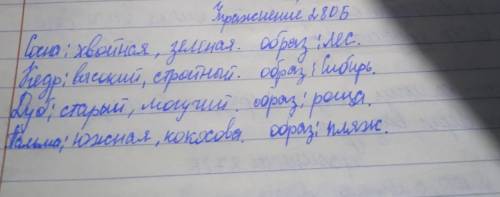 Упражнение 280Б
Сосна; хвойная, зеленая. образ: лес.
Кедр: высокий, стройный. образ: Сибирь.
Дуб; старый, могучий. образ: роща.
Пальма; южная, кокосова. образ: пляж.